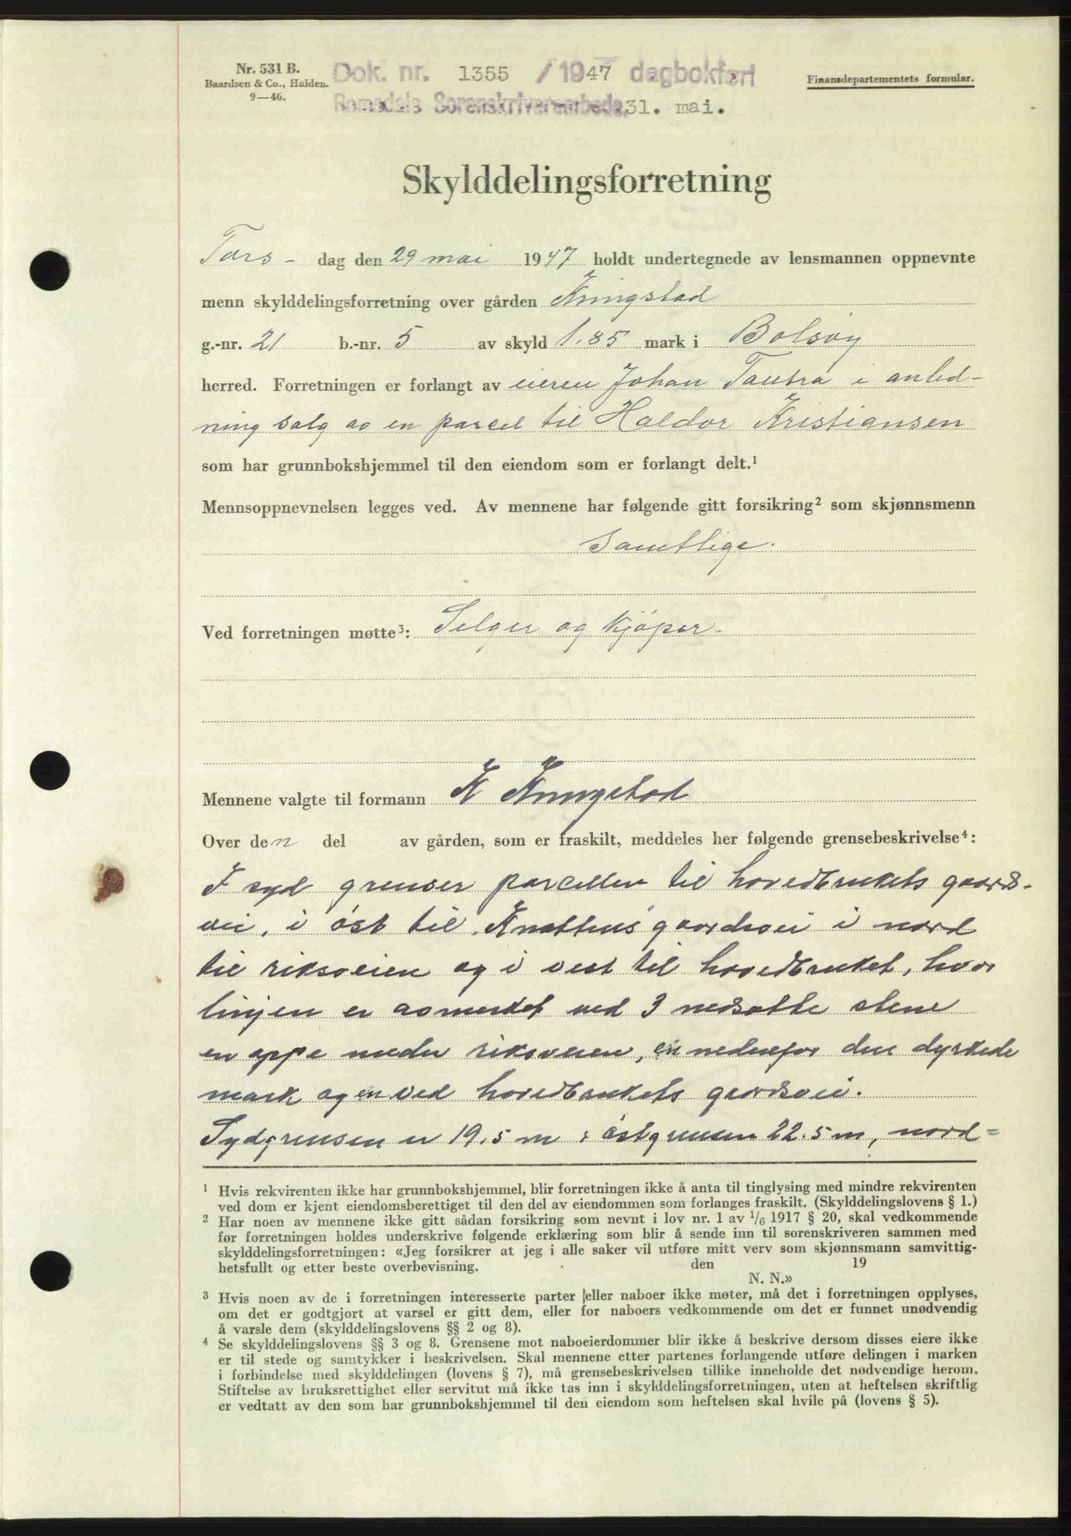 Nr. 531 B.
Baardsen & Co., Halden.
9—46.
Dok. nr. 1355 / 1947 dagbokført
Romsdals Sorenskriverembede 31. mai.
Finansdepartementets formular.
Skylddelingsforretning
Tors- dag den 29 mai 1947 holdt undertegnede av lensmannen oppnevnte
menn skylddelingsforretning over gården Kringstad
g.-nr. 21 b.-nr. 5 av skyld 1.85 mark i Bolsøy
herred. Forretningen er forlangt av eieren Johan Tautra i anled-
ning salg av en parcel til Haldor Kristiansen
som har grunnbokshjemmel til den eiendom som er forlangt delt.¹
Mennsoppnevnelsen legges ved. Av mennene har følgende gitt forsikring² som skjønnsmenn
Samtlige.
Ved forretningen møtte³: Selger og kjøper.
Mennene valgte til formann K Kringstad
Over den del av gården, som er fraskilt, meddeles her følgende grensebeskrivelse⁴:
I syd grenser parcellen til hovedbrukets gaards-
vei, i øst til Knatthus gaardsvei i nord
til riksveien og i vest til hovedbruket, hvor
linjen er avmerket ved 3 nedsatte stene
en oppe under riksveien, en nedenfor den dyrkede
mark og en ved hovedbrukets gaardsvei.
Sydgrensen er 19.5 m : østgrensen 22.5 m, nord=
¹ Hvis rekvirenten ikke har grunnbokshjemmel, blir forretningen ikke å anta til tinglysing med mindre rekvirenten
ved dom er kjent eiendomsberettiget til den del av eiendommen som forlanges fraskilt. (Skylddelingslovens § 1.)
² Har noen av mennene ikke gitt sådan forsikring som nevnt i lov nr. 1 av 1/6 1917 § 20, skal vedkommende
før forretningen holdes underskrive følgende erklæring som blir å sende inn til sorenskriveren sammen med
skylddelingsforretningen: «Jeg forsikrer at jeg i alle saker vil utføre mitt verv som skjønnsmann samvittig-
hetsfullt og etter beste overbevisning. den 19
N. N.»
³ Hvis noen av de i forretningen interesserte parter eller naboer ikke møter, må det i forretningen opplyses,
om det er godtgjort at varsel er gitt dem, eller for naboers vedkommende om det er funnet unødvendig
å varsle dem (skylddelingslovens §§ 2 og 8).
⁴ Se skylddelingslovens §§ 3 og 8. Grensene mot naboeierdommer blir ikke å beskrive dersom disses eiere ikke
er til stede og samtykker i beskrivelsen. Skal mennene etter partenes forlangende utføre delingen i marken
i forbindelse med skylddelingen (lovens § 7), må grensebeskrivelsen tillike inneholde det nødvendige herom.
Stiftelse av bruksrettighet eller servitut må ikke tas inn i skylddelingsforretningen, uten at heftelsen skriftlig
er vedtatt av den som har grunnbokshjemmel til den eiendom som heftelsen skal hvile på (lovens § 5).